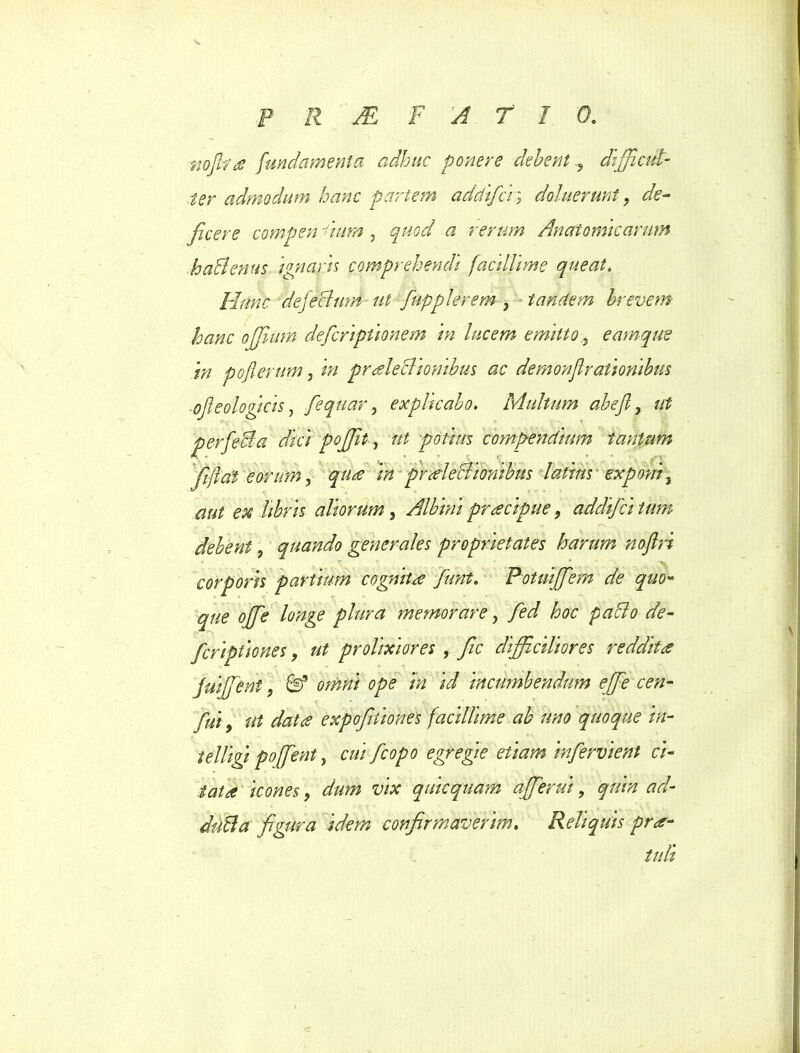 PRÆFATIO.
noſtræ fundamenta adhuc ponere debent, difficul-
ter admodum hanc partem addiſci; doluerunt, de-
ficere compendium, quod a rerum Anatomicarum
hactenus ignaris comprehendi facillime queat.
Hunc defectum ut ſupplerem, tandem brevem
hanc oſſium deſcriptionem in lucem emitto, eamque
in poſterum, in prælectionibus ac demonſtrationibus
oſteologicis, ſequar, explicabo. Multum abeſt, ut
perfecta dici poſſit, ut potius compendium tantum
ſiſtat eorum, quæ in prælectionibus latius exponi,
aut ex libris aliorum, Albini præcipue, addiſci tum
debent, quando generales proprietates harum noſtri
corporis partium cognitæ ſunt. Potuiſſem de quo-
que oſſe longe plura memorare, ſed hoc pacto de-
ſcriptiones, ut prolixiores, ſic difficiliores redditæ
fuiſſent, & omni ope in id incumbendum eſſe cen-
ſui, ut datæ expoſitiones facillime ab uno quoque in-
telligi poſſent, cui ſcopo egregie etiam inſervient ci-
tatæ icones, dum vix quicquam aſſerui, quin ad-
ducta figura idem confirmaverim. Reliquis præ-
tuli